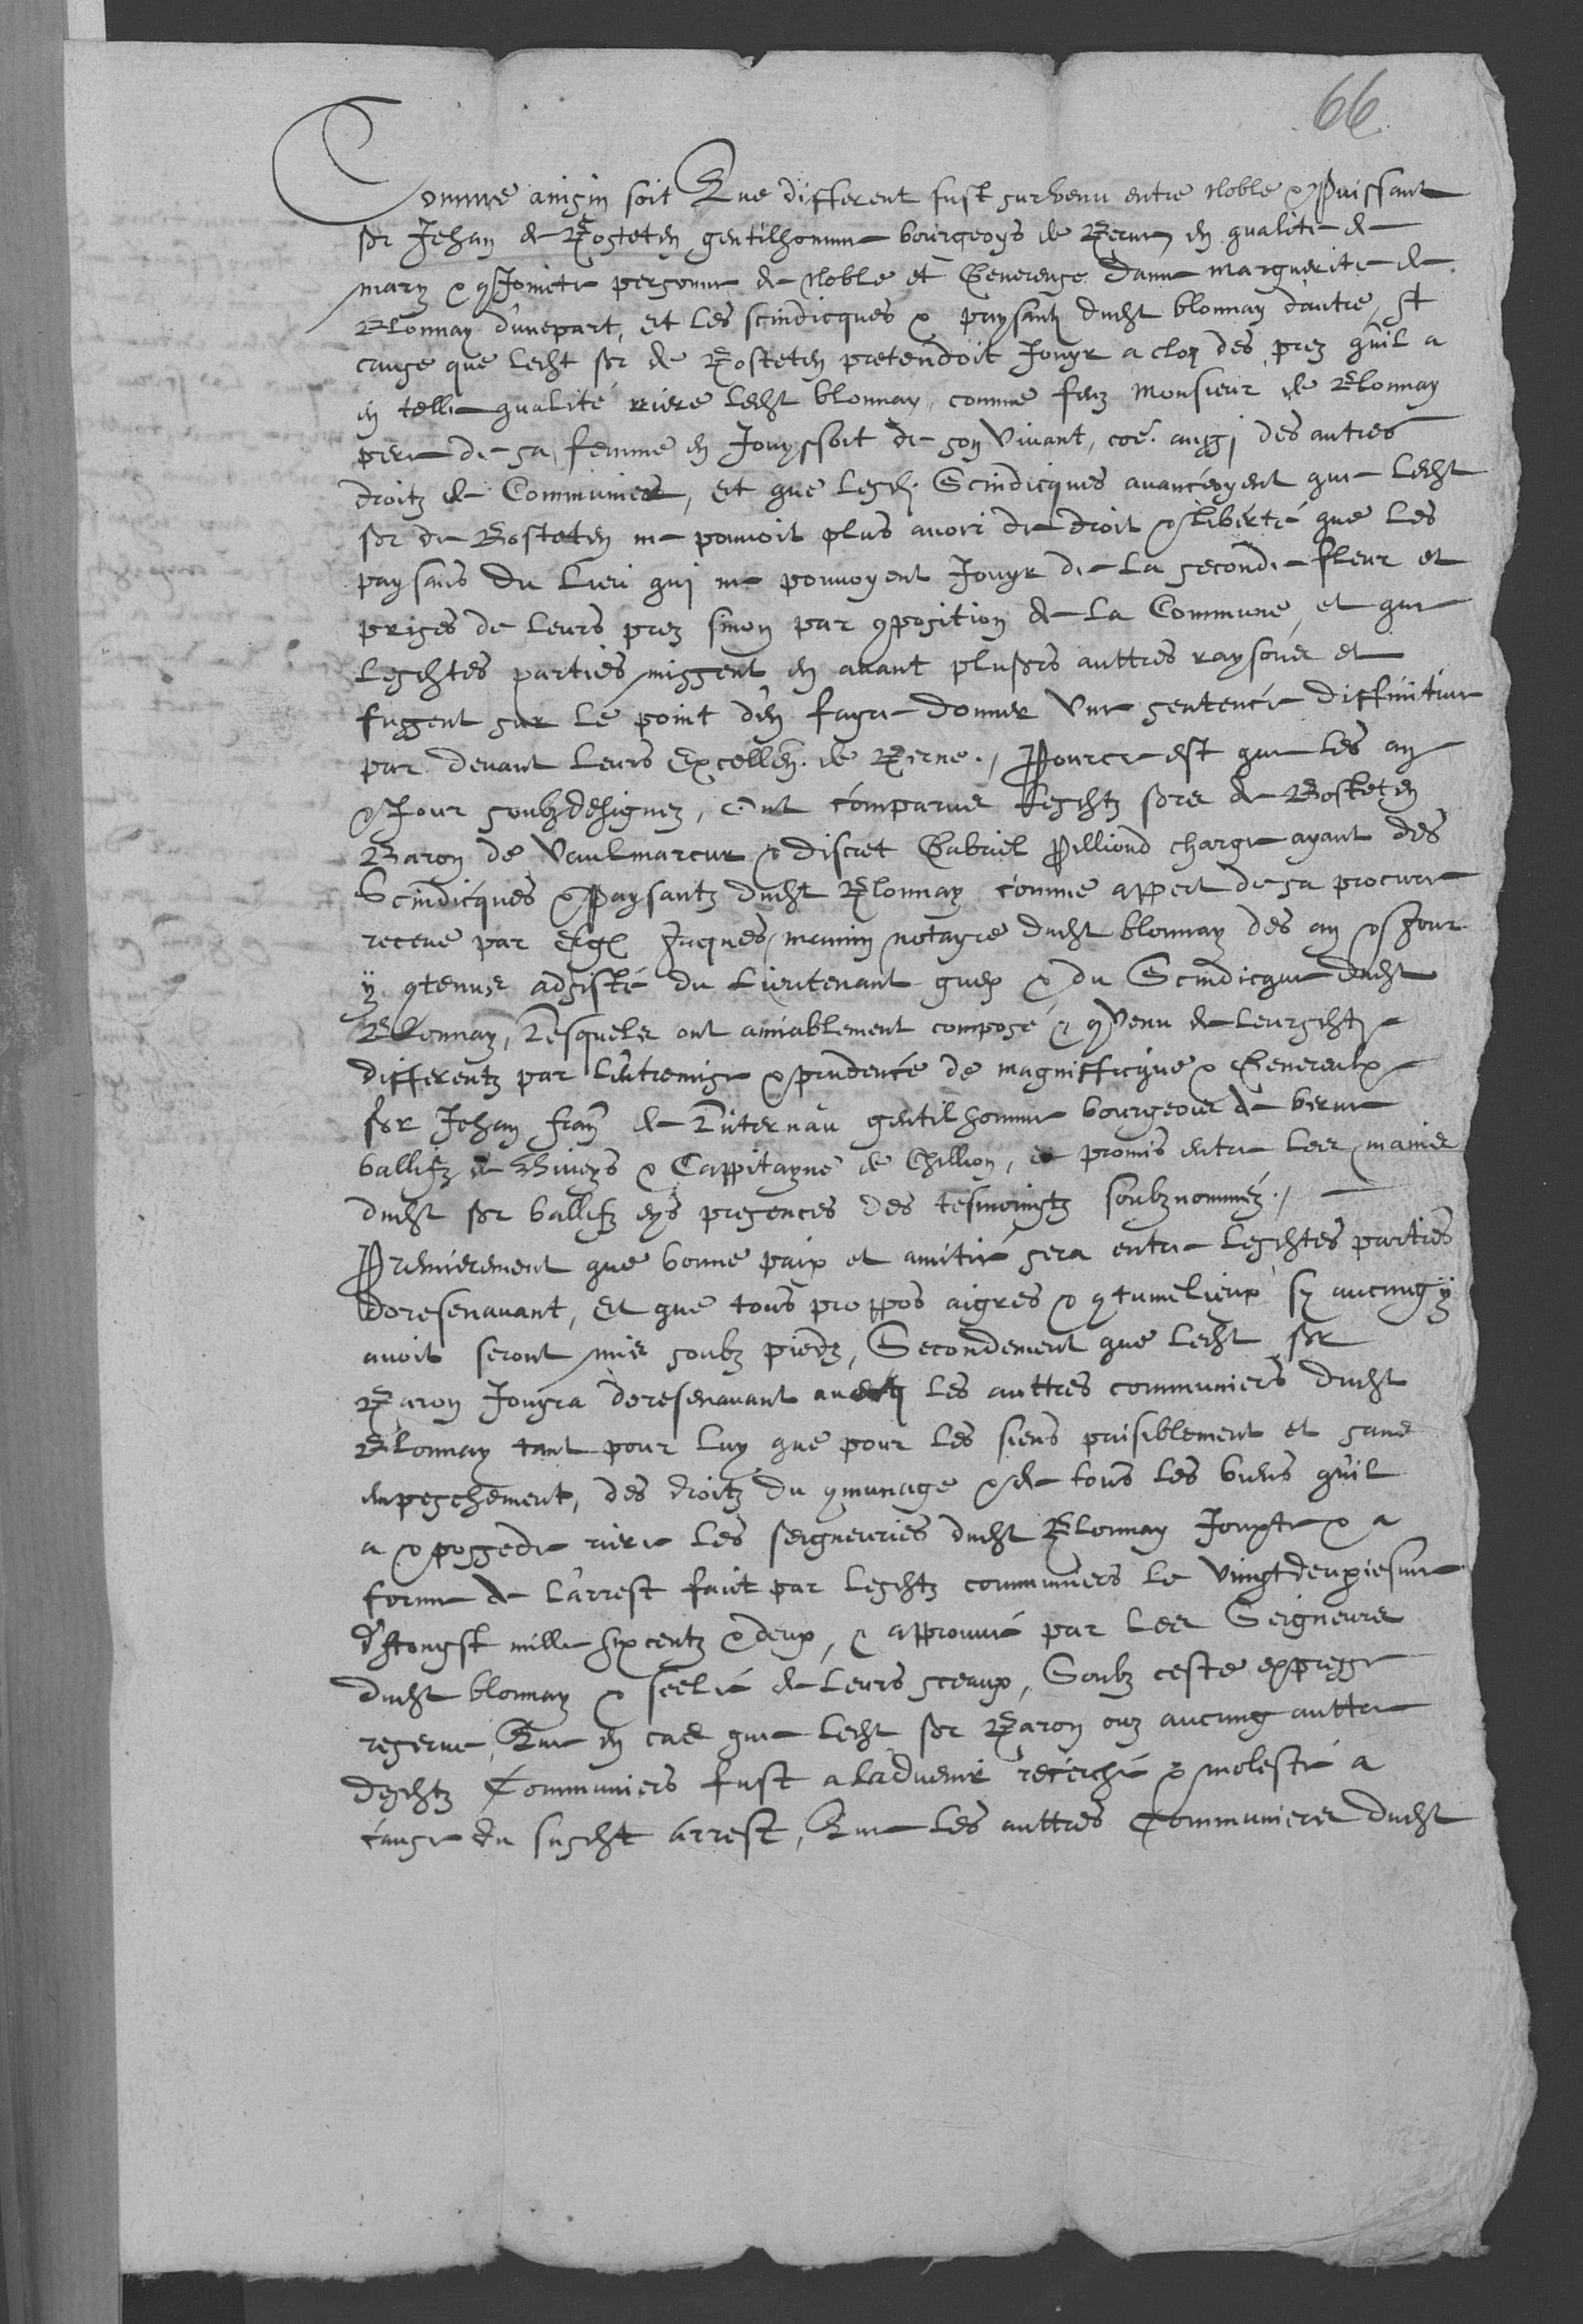 66
Comme ainsin soit Que different fust survenu entre Noble & Puissant
Sr Jehan de Bosteten gentilhomme bourgeoys de Berne, en qualité de
mary & 9Joincte personne de Noble et Genereuse Dame Marguerite de
Blonnay d'une part, Et les scindicques & paysantz dudt blonnay d'autre, A
cause que ledt Sr de Bosteten pretendoit Jouyr a cloz des prez qu'il a
en telle qualité riere ledt blonnay, comme feuz Monsieur de Blonnay
pere de sa femme en Jouyssoit de son Vivant, coe. aussi des autres
droitz de Communier, Et que lesd. Scindicques avanceoyent que ledt
Sr de Bosteten ne pouvoit plus avoir de droit & liberté que les
paysans du lieu qui ne pouvoyent Jouyr de la seconde fleur et
prises de leurs prez sinon par 9position de la Commune, et que
lesdtes parties missent en avant plusrs auttres raysons et
fussent sur le point d'en faire donner Une sentence diffinitive
par devant leurs Excellen. de Berne., Pource est que les an
& Jour soubzdesignez, Ont comparus lesdtz Srs de Bosteten
Baron de Vaulmarcux & discret Gabriel Pilliond charge ayant des
Scindicques & Paysantz dudt Blonnay comme appert de sa procure
receue par Jaques mamin notayre dudt blonnay des an & Jour
y 9tenus adsisté du Lieutenant guex & du Scindicque dudt
Blonnay, Lesquels ont amiablement composé & 9Venu de leursdtz
differentz par l'entremise & prudence de magnifficque & Genereulx
Sr Jehan fran de Diternau gentilhomme bourgeois de berne
ballifz de Viveys & Cappitayne de Chillion, et promis entre les mains
dudt Sr ballifz eys presences des tesmoingtz soubznommez.,
Premierement que bonne paix et amitié sera entre lesdtes parties
doresenavant, Et que tous proppos aigres & 9tumelieux sy aucungz y
avoit seront mis soubz piedz, Secondement que ledt Sr
Baron Jouyra doresenavant avecq les auttres communiers dudt
Blonnay tant pour luy que pour les siens paisiblement et sans
empeschement, des droitz du 9munage & de tous les biens qu'il
a & possede riere les seigneuries dudt Blonnay Jouxte & a
forme de l'arrest faict par lesdtz communiers le Vingtdeuxiesme
d'Aougst mille sixcentz & deux, & approuvé par les Seigneurs
dudt blonnay & seellé de leurs sceaux, Soubz ceste expresse
reserve, Que en cas que ledt Sr Baron ouz aucung auttre
desdtz Communiers fust a ladvenir recerché & molesté a
cause du susdt arrest, Que les auttres Communiers dudt